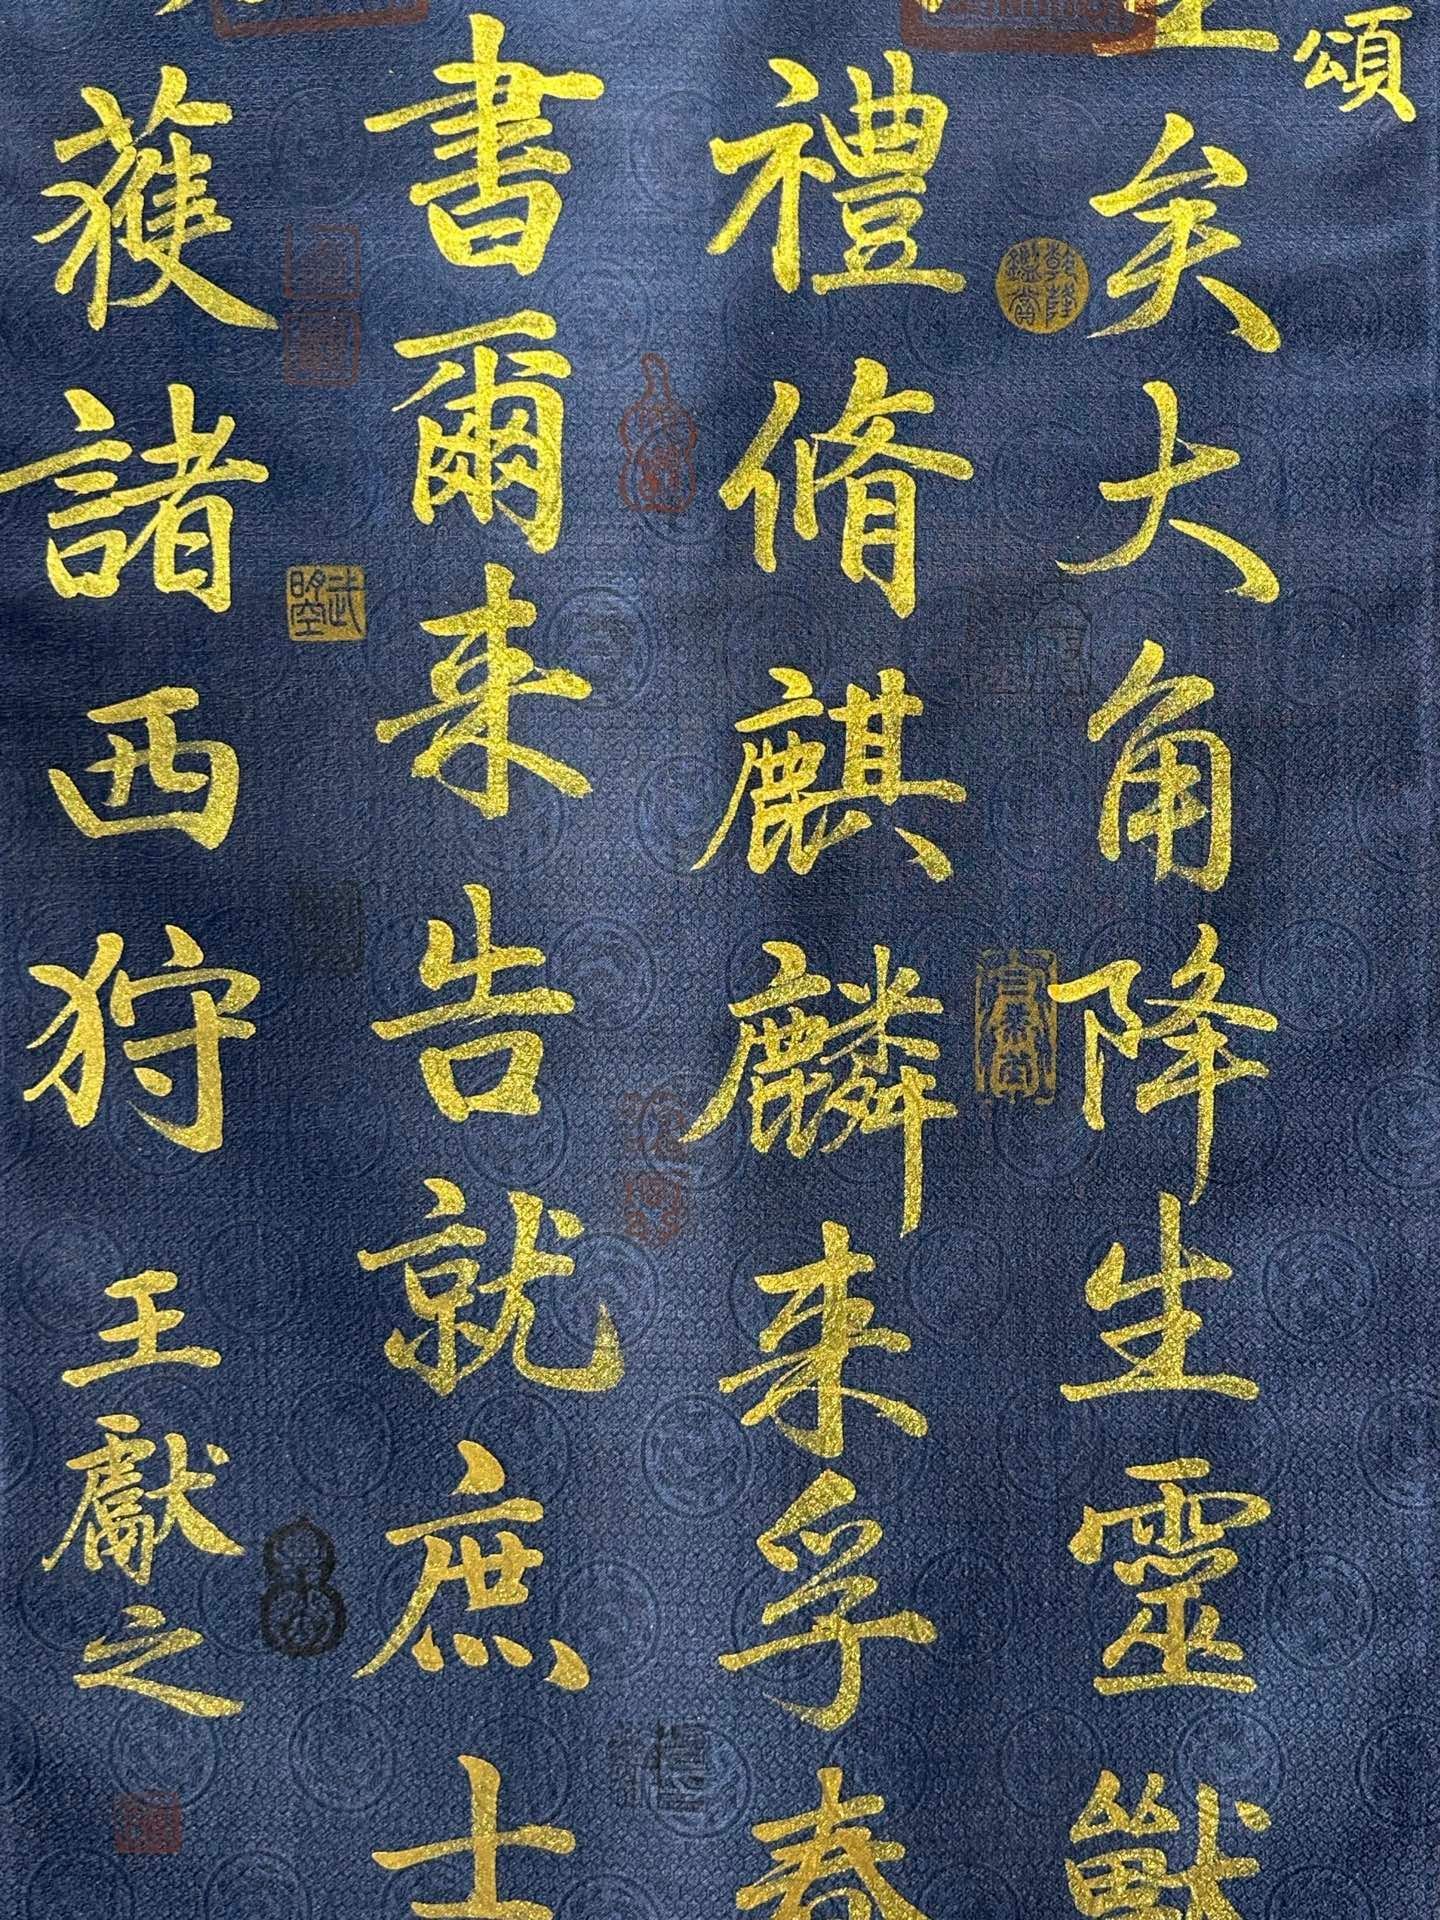 頌
矣大角降生靈獸
禮脩麒麟来孚春
書爾来告就庶士
獲諸西狩
王獻之